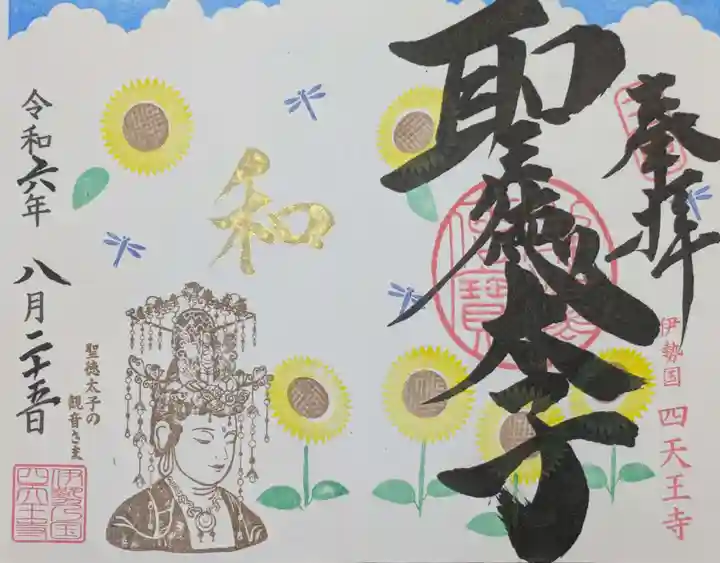 奉拝
聖徳太子
伊勢国 四天王寺
和
聖徳太子の
観音さま
令和六年 八月二十五日
伊勢之国
四天王寺